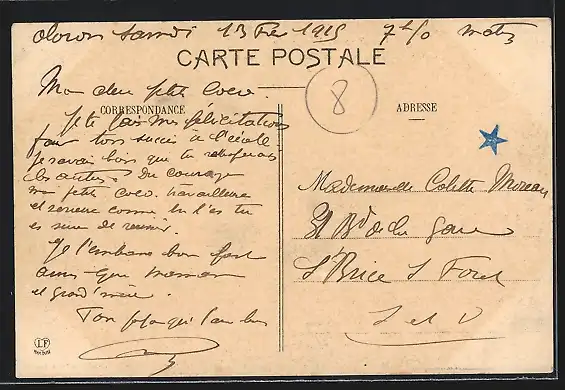 oloron samedi 13 Fév 1915 7h10 matin
CARTE POSTALE
8
CORRESPONDANCE
ADRESSE
Mon cher petit Coco.
Je te fais mes félicitations
pour tons succès à l'école
je savais bien que tu
les autres. Du courage
mon petit Coco. travailleuse
et serieuse comme tu l'es tu
es sure de reussir.
Je t'embrasse bien fort
ainsi que maman
et grand'mère.
Ton papa qui t'aime bien
Mademoiselle Colette Moreau
31 Bd de la gare
St Brice s Foret
S et O
LF